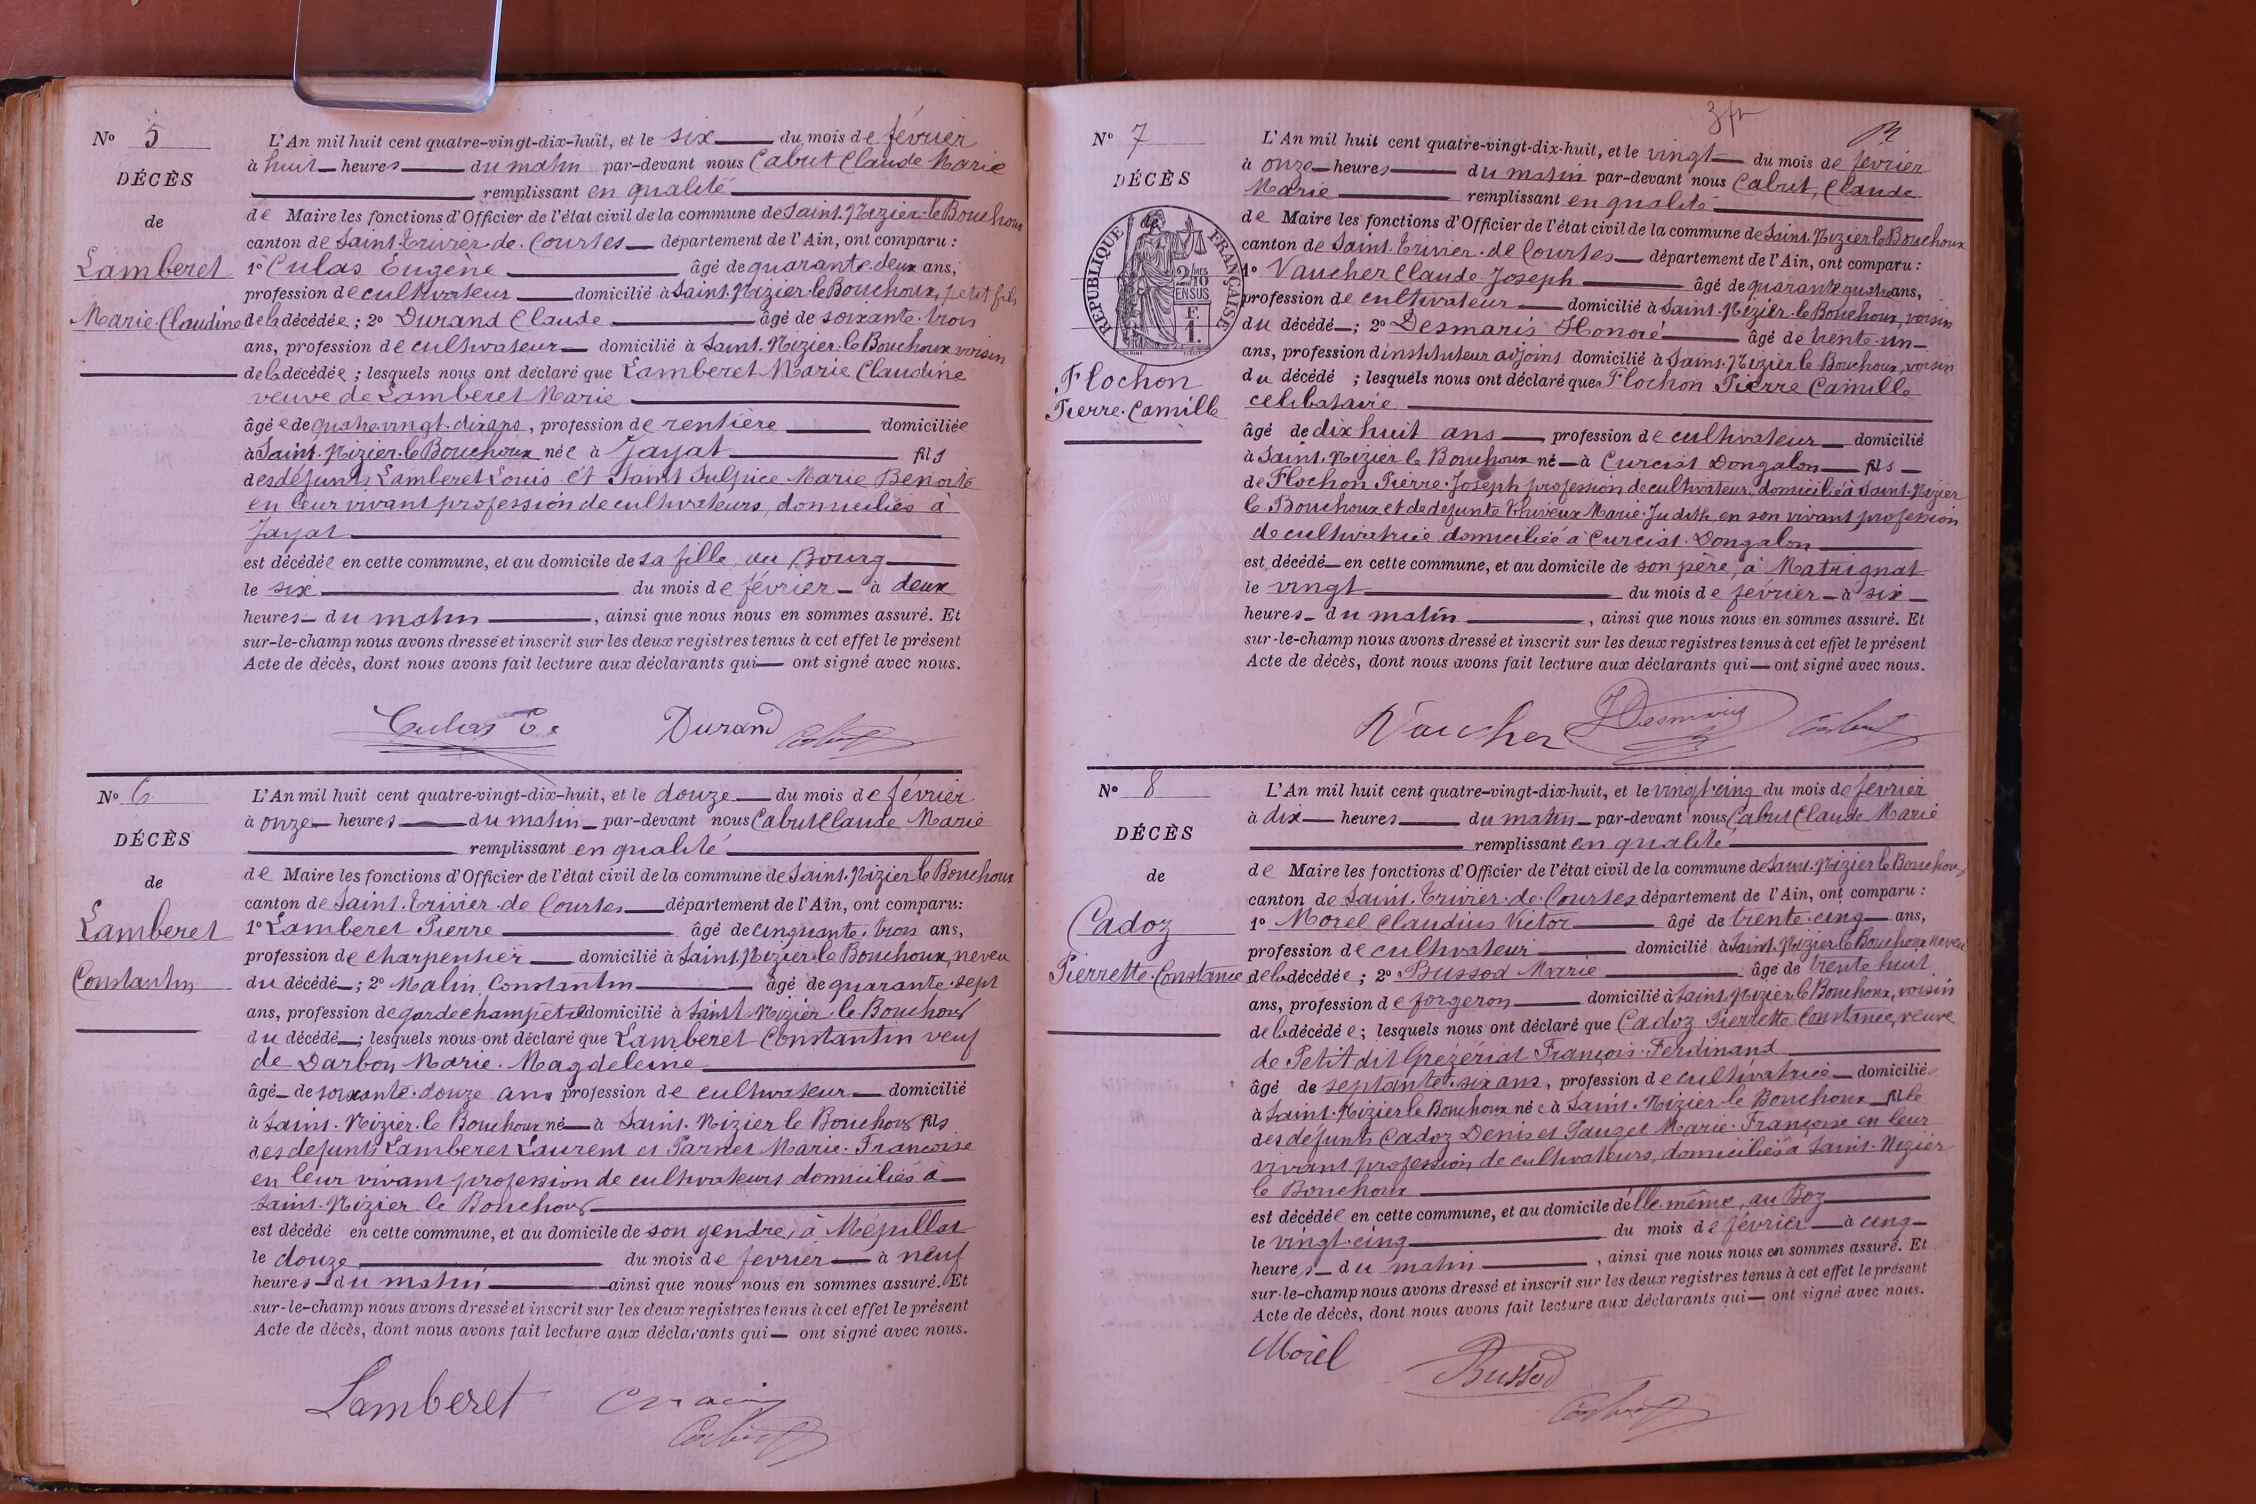 N° 5
DÉCÈS
de
Lamberet
Marie Claudine
L'An mil huit cent quatre-vingt-dix-huit, et le six du mois de février
à huit heures du matin par-devant nous Cabut Claude Marie
remplissant en qualité
de Maire les fonctions d'Officier de l'état civil de la commune de Saint-Nizier-le-Bouchoux
canton de Saint-Trivier-de-Courtes département de l'Ain, ont comparu :
1° Culas Eugène âgé de quarante-deux ans,
profession de cultivateur domicilié à Saint-Nizier-le-Bouchoux, petit fils
de la décédée ; 2° Durand Claude âgé de soixante-trois
ans, profession de cultivateur domicilié à Saint-Nizier-le-Bouchoux voisin
de la décédée ; lesquels nous ont déclaré que Lamberet Marie Claudine
veuve de Lamberet Marie
âgée de quatre-vingt-dix ans, profession de rentière domiciliée
à Saint-Nizier-le-Bouchoux née à Jayat fils
des défunts Lamberet Louis et Saint Sulpice Marie Benoite
en leur vivant profession de cultivateurs, domiciliés à
Jayat
est décédée en cette commune, et au domicile de sa fille, au Bourg
le six du mois de février à deux
heures du matin, ainsi que nous nous en sommes assuré. Et
sur-le-champ nous avons dressé et inscrit sur les deux registres tenus à cet effet le présent
Acte de décès, dont nous avons fait lecture aux déclarants qui ont signé avec nous.
Culas E. Durand Cabut
N° 6
DÉCÈS
de
Lamberet
Constantin
L'An mil huit cent quatre-vingt-dix-huit, et le douze du mois de février
à onze heures du matin par-devant nous Cabut Claude Marie
remplissant en qualité
de Maire les fonctions d'Officier de l'état civil de la commune de Saint-Nizier le Bouchoux
canton de Saint-Trivier-de-Courtes département de l'Ain, ont comparu :
1° Lamberet Pierre âgé de cinquante-trois ans,
profession de charpentier domicilié à Saint-Nizier-le-Bouchoux, neveu
du décédé ; 2° Malin Constantin âgé de quarante-sept
ans, profession de garde champêtre domicilié à Saint Nizier-le Bouchoux
du décédé ; lesquels nous ont déclaré que Lamberet Constantin veuf
de Darbon Marie-Magdeleine
âgé de soixante-douze ans profession de cultivateur domicilié
à Saint-Nizier-le Bouchoux né à Saint-Nizier le Bouchoux fils
des défunts Lamberet Laurent et Parnet Marie-Francoise
en leur vivant profession de cultivateurs domiciliés à
Saint-Nizier le Bouchoux
est décédé en cette commune, et au domicile de son gendre, à Mépillat
le douze du mois de février à neuf
heures du matin ainsi que nous nous en sommes assuré. Et
sur-le-champ nous avons dressé et inscrit sur les deux registres tenus à cet effet le présent
Acte de décès, dont nous avons fait lecture aux déclarants qui ont signé avec nous.
Lamberet
Cabut
3 fr
N° 7
DÉCÈS
de
RÉPUBLIQUE FRANÇAISE
2/10 MES
EN SUS
1 F.
Flochon
Pierre-Camille
L'An mil huit cent quatre-vingt-dix-huit, et le vingt du mois de février
à onze heures du matin par-devant nous Cabut, Claude
Marie remplissant en qualité
de Maire les fonctions d'Officier de l'état civil de la commune de Saint-Nizier le Bouchoux
canton de Saint-Trivier-de Courtes département de l'Ain, ont comparu :
1° Vaucher Claude-Joseph âgé de quarante quatre ans,
profession de cultivateur domicilié à Saint-Nizier-le Bouchoux, voisin
du décédé ; 2° Desmaris Honoré âgé de trente-un
ans, profession d'instituteur adjoint domicilié à Saint-Nizier le Bouchoux, voisin
du décédé ; lesquels nous ont déclaré que Flochon Pierre Camille
célibataire
âgé de dix huit ans profession de cultivateur domicilié
à Saint-Nizier le Bouchoux né à Curciat Dongalon fils
de Flochon Pierre-Joseph profession de cultivateur, domicilié à Saint-Nizier
le Bouchoux et de défunte Thiveux Marie-Judith en son vivant profession
de cultivatrice domiciliée à Curciat-Dongalon
est décédé en cette commune, et au domicile de son père, à Matrignat
le vingt du mois de février à six
heures du matin, ainsi que nous nous en sommes assuré. Et
sur-le-champ nous avons dressé et inscrit sur les deux registres tenus à cet effet le présent
Acte de décès, dont nous avons fait lecture aux déclarants qui ont signé avec nous.
Vaucher HDesmaris Cabut
N° 8
DÉCÈS
de
Cadoz
Pierrette-Constance
L'An mil huit cent quatre-vingt-dix-huit, et le vingt-cinq du mois de février
à dix heures du matin par-devant nous Cabut Claude Marie
remplissant en qualité
de Maire les fonctions d'Officier de l'état civil de la commune de Saint-Nizier le Bouchoux
canton de Saint-Trivier-de-Courtes département de l'Ain, ont comparu :
1° Morel Claudius Victor âgé de trente-cinq ans,
profession de cultivateur domicilié à Saint-Nizier-le Bouchoux neveu
de la décédée ; 2° Bussod Marie âgé de trente huit
ans, profession de forgeron domicilié à Saint-Nizier le Bouchoux, voisin
de la décédée ; lesquels nous ont déclaré que Cadoz Pierrette Constance, veuve
de Petit dit Grézériat François-Ferdinand
âgé de septante-six ans, profession de cultivatrice domiciliée
à Saint-Nizier le Bouchoux née à Saint-Nizier le Bouchoux fille
des défunts Cadoz Denis et Gauget Marie-Françoise en leur
vivant profession de cultivateurs, domiciliés à Saint-Nizier
le Bouchoux
est décédée en cette commune, et au domicile d'elle même, au Boz
le vingt-cinq du mois de février à cinq
heures du matin, ainsi que nous nous en sommes assuré. Et
sur-le-champ nous avons dressé et inscrit sur les deux registres tenus à cet effet le présent
Acte de décès, dont nous avons fait lecture aux déclarants qui ont signé avec nous.
Morel Bussod
Cabut